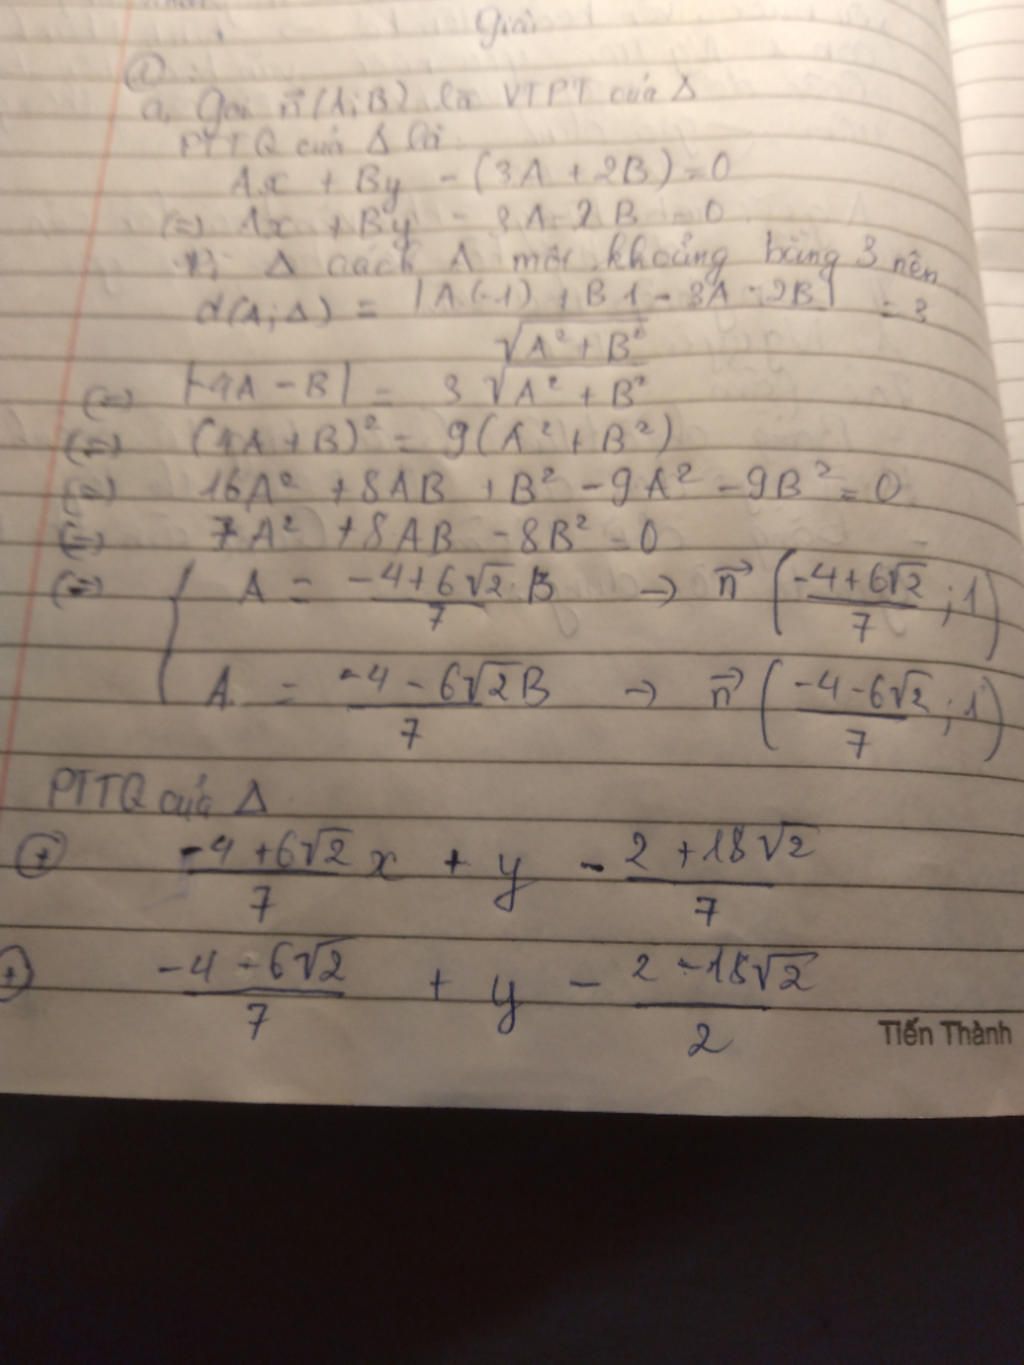 Giải
①:
a, Gọi n⃗(A;B) là VTPT của Δ
PTTQ của Δ là:
Ax + By - (3A + 2B) = 0
(=) Ax + By - 3A - 2B = 0
Vì Δ cách A một khoảng bằng 3 nên
d(A;Δ) = |A(-1) + B1 - 3A - 2B| / √(A² + B²) = 3
(=) |-4A - B| = 3√(A² + B²)
(=) (4A + B)² = 9(A² + B²)
(=) 16A² + 8AB + B² - 9A² - 9B² = 0
(=) 7A² + 8AB - 8B² = 0
(=) { A = (-4+6√2)/7 B → n⃗ ((-4+6√2)/7 ; 1)
A = (-4-6√2B)/7 → n⃗ ((-4-6√2)/7 ; 1)
PTTQ của Δ
⊕ (-4+6√2)/7 x + y - (2+18√2)/7
⊕ (-4-6√2)/7 + y - (2-18√2)/2
Tiến Thành